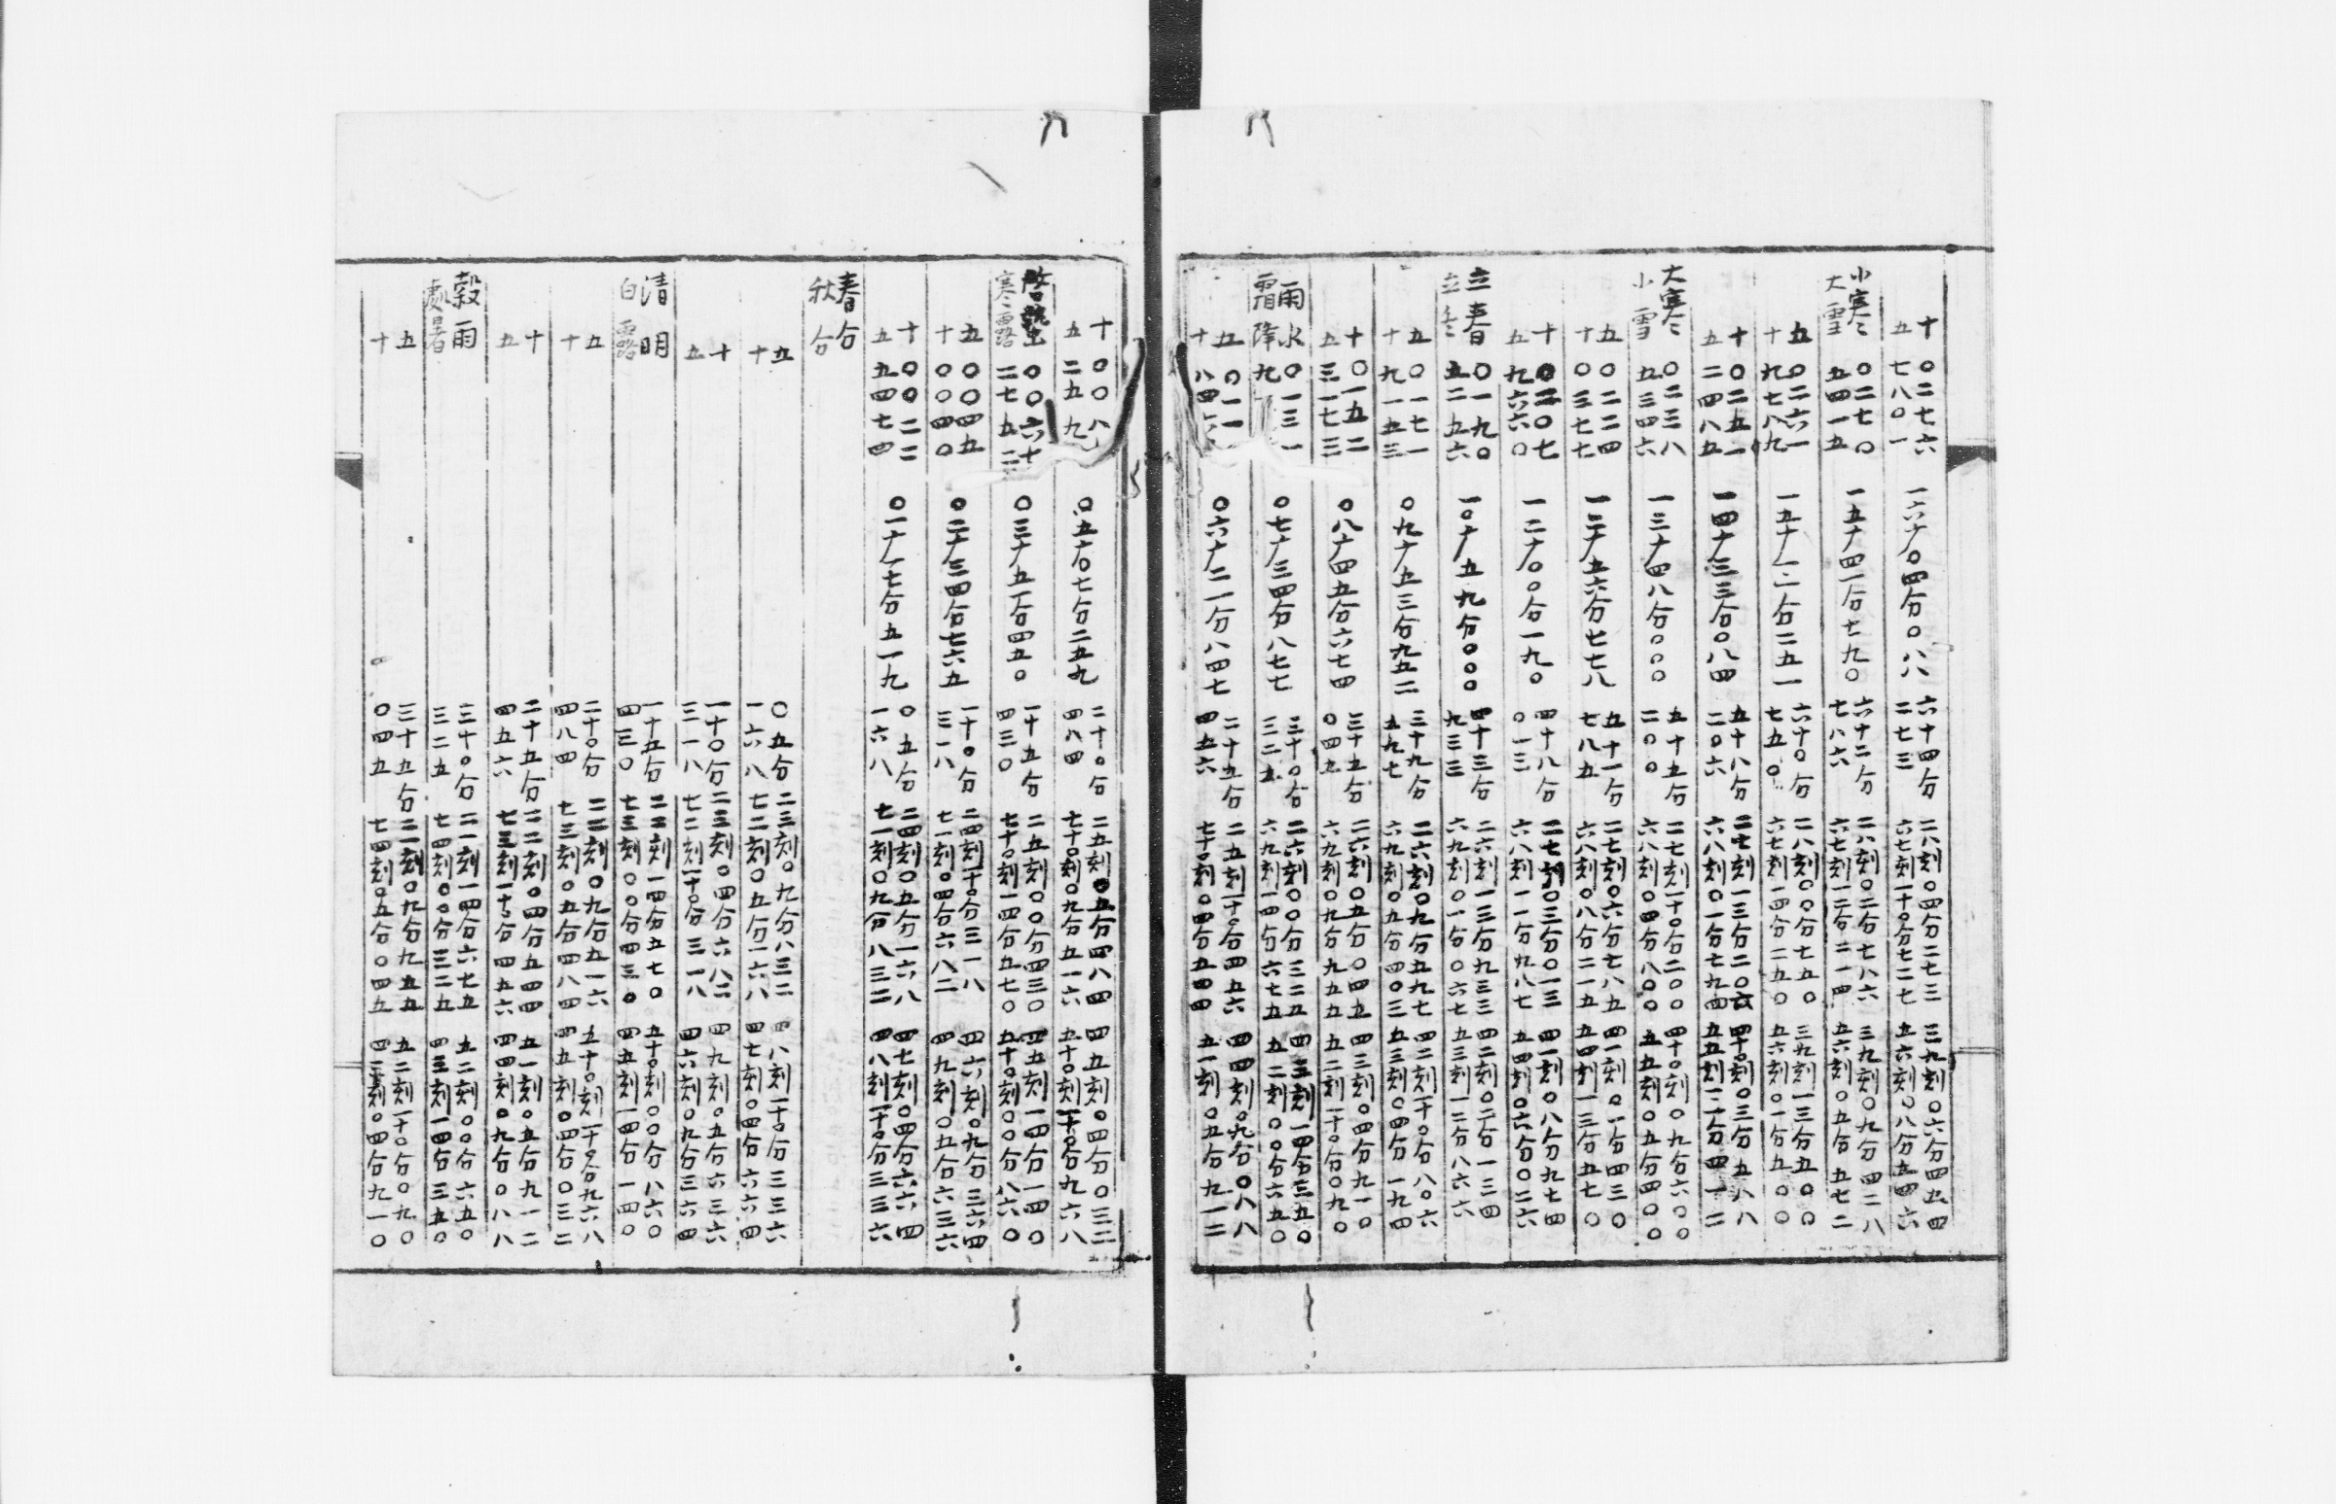 十五 〇二七六七八〇一 一六十〇四分〇八八 六十四分二七三 二八刻〇四分二七三六七刻一十〇分七二七 三九刻〇六分四五四五六刻〇八分五四六
小寒大雪 〇二七〇五四一五 一五十四一分七九〇 六十二分七八六 二八刻〇二分七八六六七刻一二分二一四 三九刻〇九分四二八五六刻〇五分五七二
五十 〇二六一九七八九 一五十一二分二五一 六十〇分七五〇 二八刻〇〇分七五〇六七刻一四分二五〇 三九刻一三分五〇〇五六刻〇一分五〇〇
十五 〇二五一二四八五 一四十三三分〇八四 五十八分二〇六 二七刻一三分二〇六六八刻〇一分七九四 四十〇刻〇三分五八八五五刻一二分四一二
大寒小雪 〇二三八五三四六 一三十四八分〇〇〇 五十五分二〇〇 二七刻一十〇分二〇〇六八刻〇四分八〇〇 四十〇刻〇九分六〇〇五五刻〇五分四〇〇
五十 〇二二四〇三七七 一二十五六分七七八 五十一分七八五 二七刻〇六分七八五六八刻〇八分二一五 四一刻〇一分四三〇五四刻一三分五七〇
十五 〇二〇七九六六〇 一二十〇〇分一九〇 四十八分〇一三 二七刻〇三分〇一三六八刻一一分九八七 四一刻〇八分九七四五四刻〇六分〇二六
立春立冬 〇一九〇五二五六 一〇十五九分〇〇〇 四十三分九三三 二六刻一三分九三三六九刻〇一分〇六七 四二刻〇二分一三四五三刻一二分八六六
五十 〇一七一九一五三 〇九十五三分九五二 三十九分五九七 二六刻〇九分五九七六九刻〇五分四〇三 四二刻一十〇分八〇六五三刻〇四分一九四
十五 〇一五二三一七三 〇八十四五分六七四 三十五分〇四五 二六刻〇五分〇四五六九刻〇九分九五五 四三刻〇四分九一〇五二刻一十〇分〇九〇
雨水霜降 〇一三一九 〇七十三四分八七七 三十〇分三二五 二六刻〇〇分三二五六九刻一四分六七五 四三刻一四分三五〇五二刻〇〇分六五〇
五十 〇一一八四六 〇六十二一分八四七 二十五分四五六 二五刻一十〇分四五六七十〇刻〇四分五四四 四四刻〇九分〇八八五一刻〇五分九一二
十五 〇〇八二五九 〇五十〇七分二五九 二十〇分四八四 二五刻〇五分四八四七十〇刻〇九分五一六 四五刻〇四分〇三二五十〇刻一十〇分九六八
啓蟄寒露 〇〇六十二七五二 〇三十五一分四五〇 一十五分四三〇 二五刻〇〇分四三〇七十〇刻一四分五七〇 四五刻一四分一四〇五十〇刻〇〇分八六〇
五十 〇〇四五〇〇四〇 〇二十三四分七六五 一十〇分三一八 二四刻一十〇分三一八七一刻〇四分六八二 四六刻〇九分三六四四九刻〇五分六三六
十五 〇〇二二五四七四 〇一十一七分五一九 〇五分一六八 二四刻〇五分一六八七一刻〇九分八三二 四七刻〇四分六六四四八刻一十〇分三三六
春分秋分
五十 〇五分一六八 二三刻〇九分八三二七二刻〇五分一六八 四八刻一十〇分三三六四七刻〇四分六六四
十五 一十〇分三一八 二三刻〇四分六八二七二刻一十〇分三一八 四九刻〇五分六三六四六刻〇九分三六四
清明白露 一十五分四三〇 二二刻一四分五七〇七三刻〇〇分四三〇 五十〇刻〇〇分八六〇四五刻一四分一四〇
五十 二十〇分四八四 二二刻〇九分五一六七三刻〇五分四八四 五十〇刻一十〇分九六八四五刻〇四分〇三二
十五 二十五分四五六 二二刻〇四分五四四七三刻一十〇分四五六 五一刻〇五分九一二四四刻〇九分〇八八
穀雨處暑 三十〇分三二五 二一刻一四分六七五七四刻〇〇分三二五 五二刻〇〇分六五〇四三刻一四分三五〇
五十 三十五分〇四五 二一刻〇九分九五五七四刻〇五分〇四五 五二刻一十〇分〇九〇四三刻〇四分九一〇